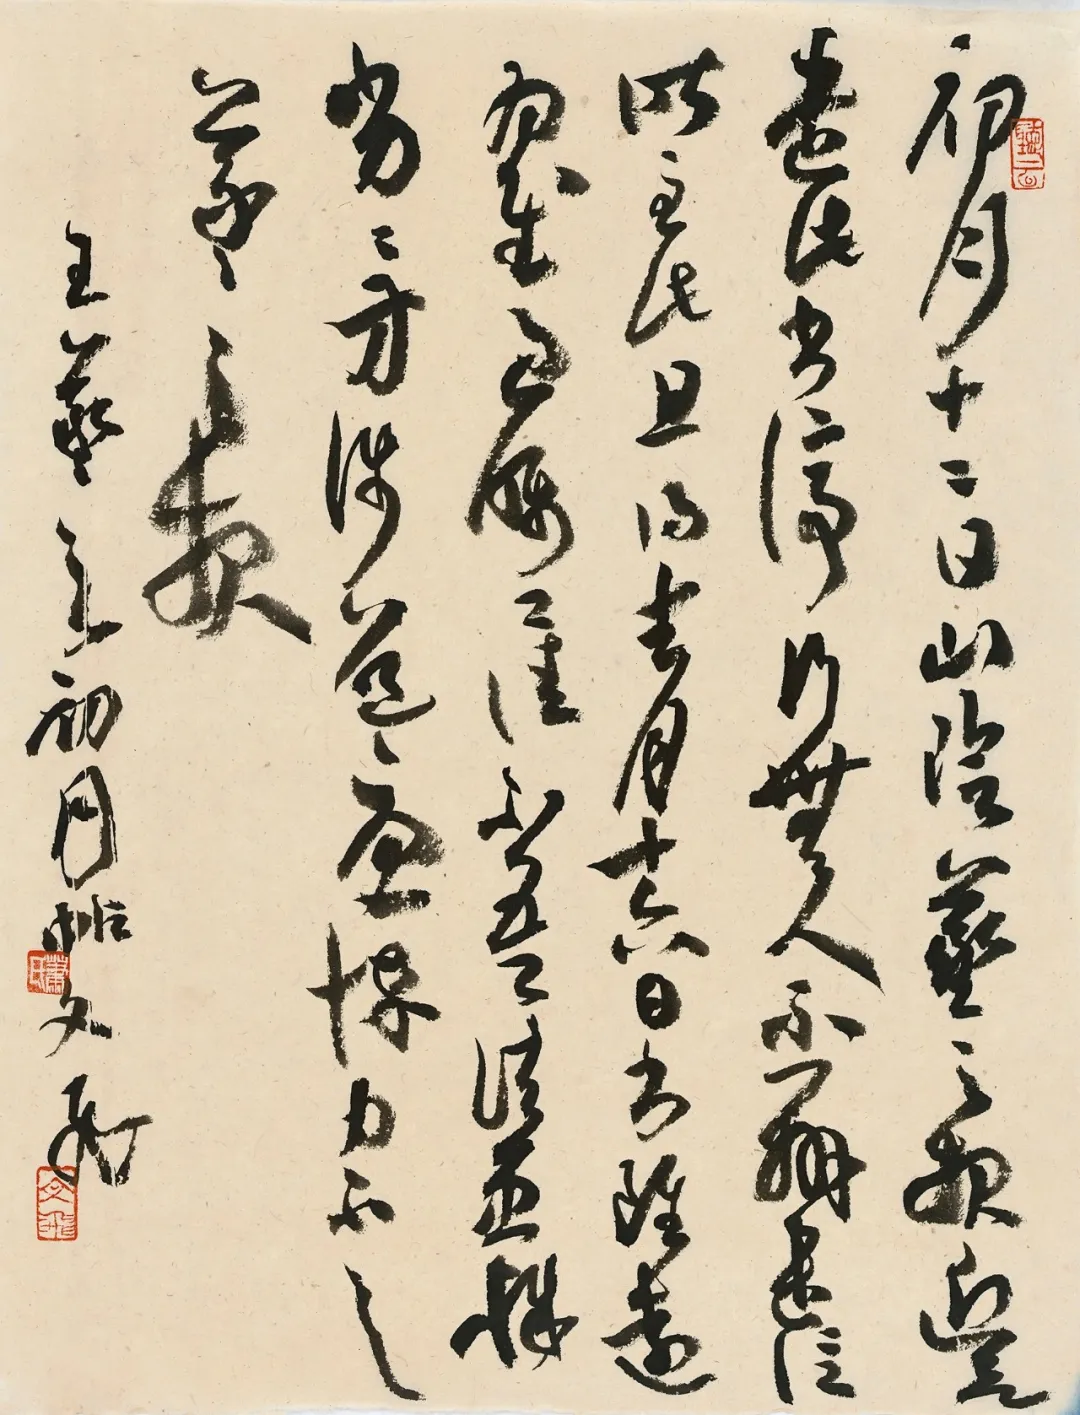 初月十二日山陰羲之報近欲
遣此書停行無人不辦遣信
昨至此且得去月十六日書雖遠
為慰過囑佳不吾諸患殊
劣〻方涉道憂悴力不具
羲之報
王羲之初月帖 文飛
蕭氏
文飛